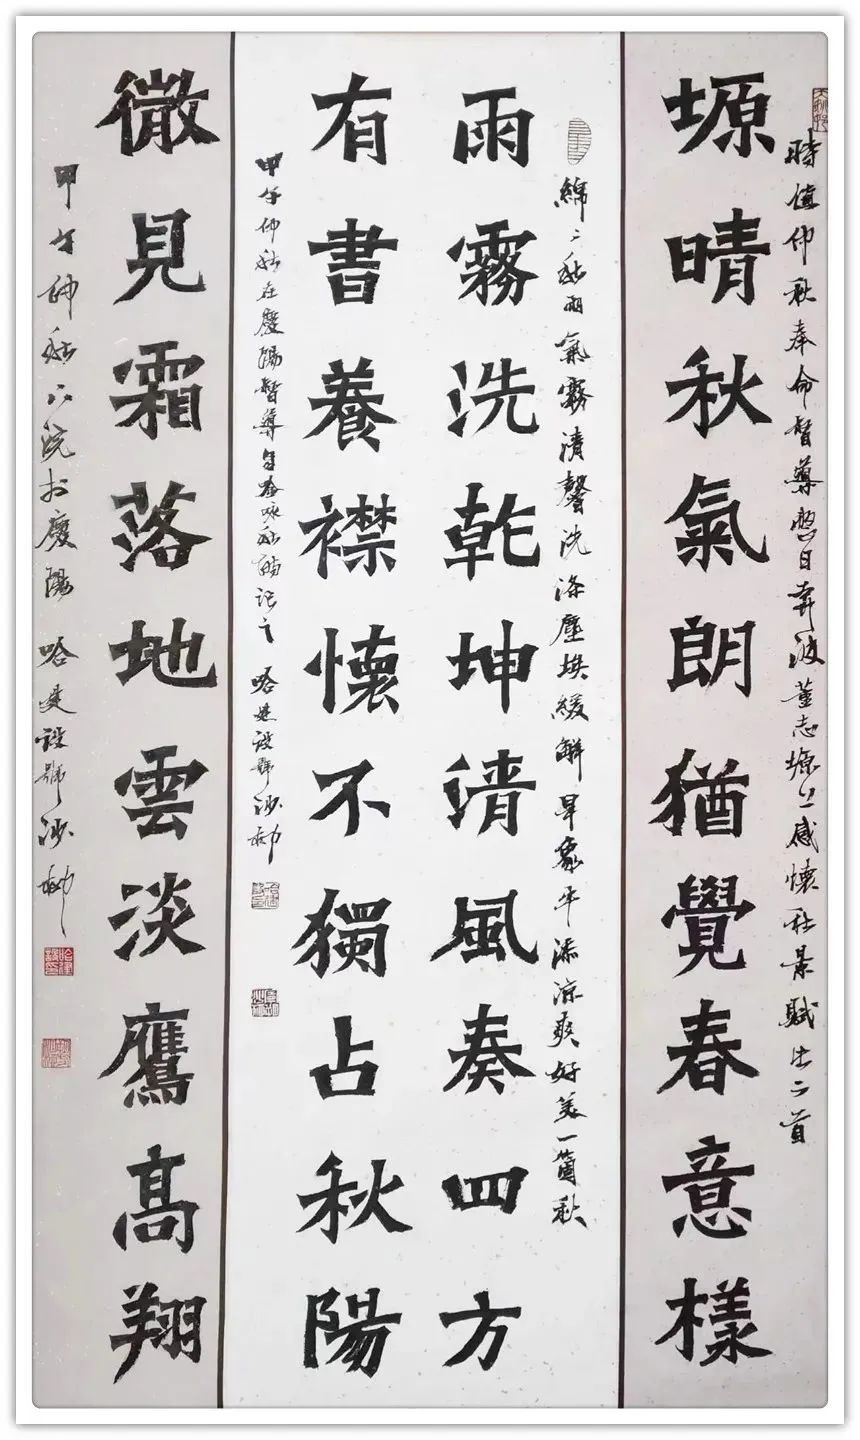 時值仲秋奉命督導整日奔波董志塬上感懷秋景賦出二首
塬晴秋氣朗猶覺春意樣
綿〻秋雨氣霧清馨洗滌塵埃緩解旱象平添涼爽好美一箇秋
雨霧洗乾坤清風奏四方
有書養襟懷不獨占秋陽
甲午仲秋在慶陽督導自吟咏秋記之 哈建設號沙柳
微見霜落地雲淡鷹髙翔
甲午仲秋下浣於慶陽 哈建設號沙柳